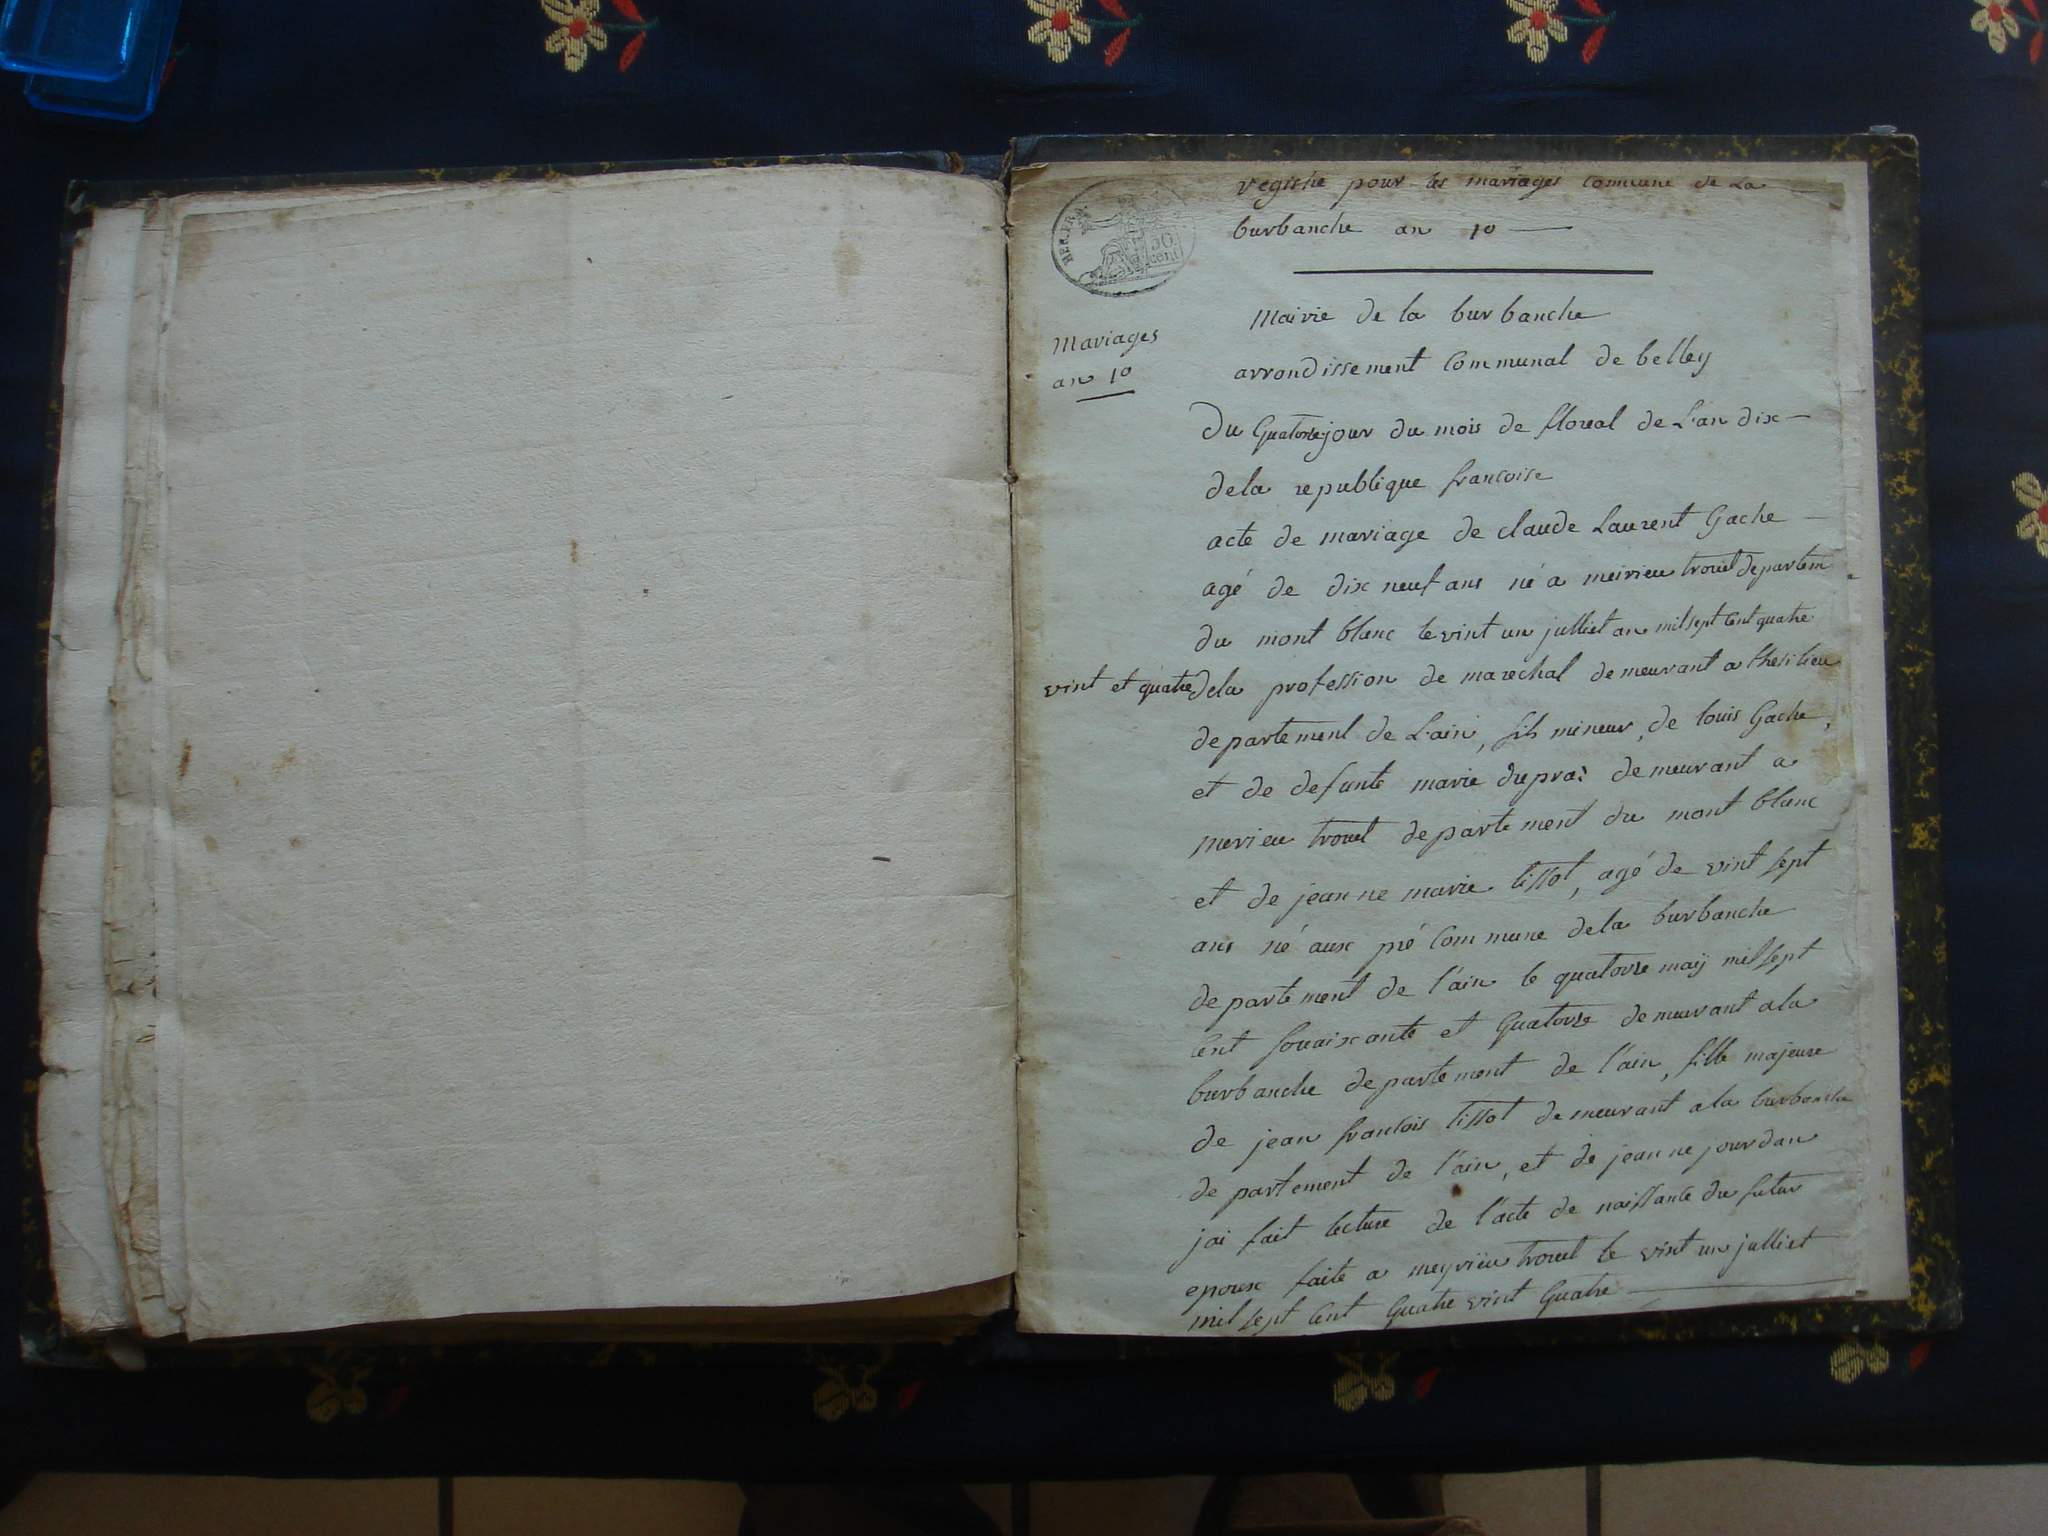 registre pour les mariages commune de La
burbanche an 10
REP. FRA.
50
cent
Mariages
an 10
Mairie de la burbanche
arrondissement Communal de belley
Du Quatorze jour du mois de floreal de L'an dix
dela republique francoise
acte de mariage de claude Laurent Gache
agé de dix neuf ans né a meirieu trouet departem
du mont blanc le vint un julliet an mil sept Cent quatre
vint et quatre dela profession de marechal demeurant a thesilieu
departement de L'ain, fils mineur, de louis Gache,
et de defunte marie dupraz demeurant a
merieu trouet departement du mont blanc
et de jeanne marie tissot, agé de vint sept
ans né aux pré Commune dela burbanche
departement de l'ain le quatorze maÿ mil sept
Cent souaixante et Quatorze demeurant ala
burbanche departement de l'ain, fille majeure
de jean francois tissot demeurant ala burbanche
departement de l'ain, et de jeanne jourdan
jai fait lecture de l'acte de naissance du futur
epoux faite a meyrieu trouet le vint un julliet
mil sept Cent Quatre vint Quatre